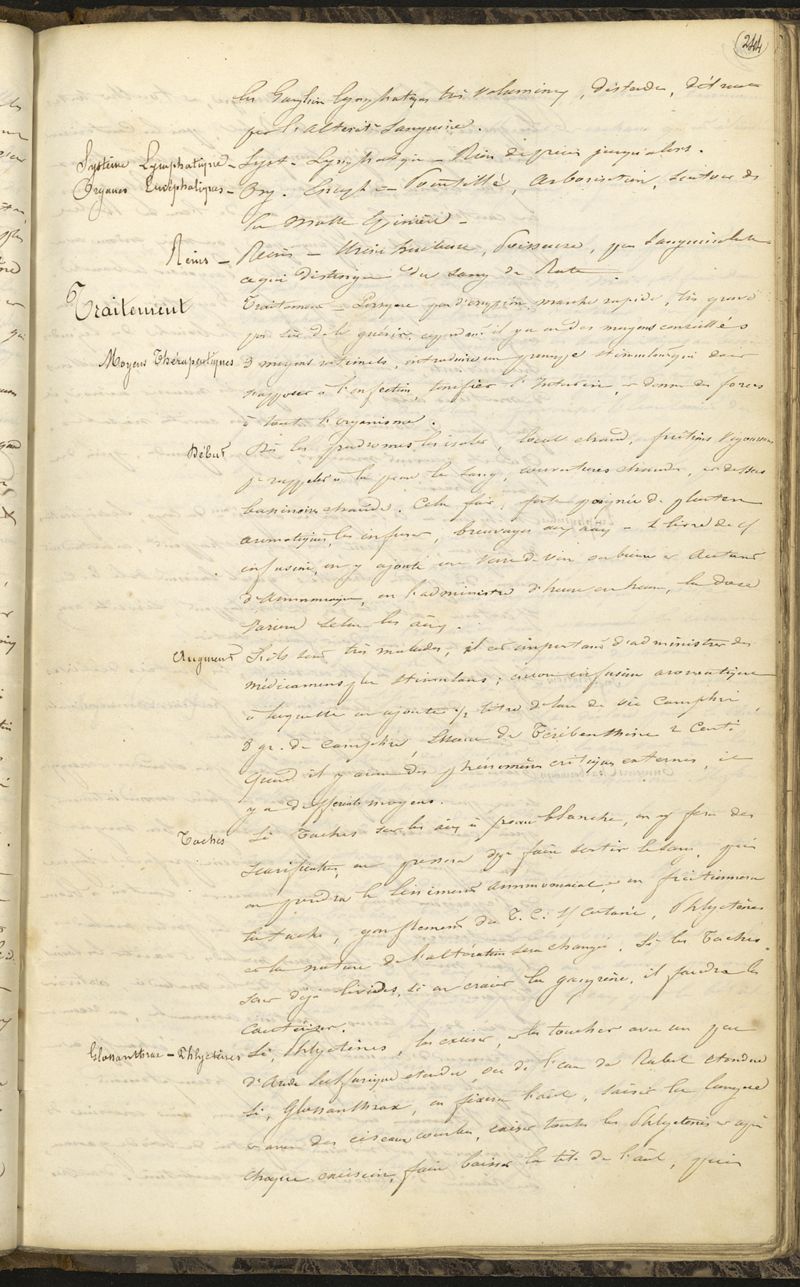 244
les Ganglions lymphatiques très volumineux, distendus,
par l'altération sanguine.
Système Lymphatique - Syst - Lymphatique - Rien d'apprécié jusqu'alors.
Organes Encéphaliques - Org. Enceph - Pointillé, arborisation,
la Moelle Epinière -
Reins - Reins - Urine Poisseuse, sanguinolente
ce qui distingue du sang de Rate.
Traitement
Traitement - Lorsque pas d'éruption marche rapide, très grave
pas sûr de le guérir, cependant il y a des moyens conseillés
Moyens Thérapeutiques
3 moyens rationnels, introduire un principe stimulant qui doit
s'opposer à l'infection, tonifier l'intérieur, et donner des forces
à toute l'organisme.
Début
Dès les prodromes, les isoler, local chaud, frictions vigoureuses
pr rappeler à la peau le sang, couvertures chaudes, et dessus
bassinoire chaude. Cela fait, forte poignée de plantes
aromatiques, les infuser, breuvages aux aux - 2 litres de cette
infusion, on y ajoute un verre de vin ou bière et autant
d'Ammoniaque, on l'administre d'heure en heure, la dose
variera selon les aux.
Augment
S'ils sont très malades, il est important d'administrer des
médicamens plus stimulans; encore infusion aromatique
à laquelle on ajoute 1/2 litre d'eau de vie camphrée,
8 gr. de camphre, Essence de Térébenthine 2 Centi
Quand il y aura des phénomènes critiques externes, il
y a différents moyens.
Taches
Si Taches sur les aux à peau blanche, on y fera des
scarifications, on pressera pr faire sortir le sang, puis
on prendra le liniment ammoniacal et on frictionnera
la tache, gonflement du T. C. s/ cutané, Phlyctènes
et la nature de l'altération sera changée. Si les Taches
sont déjà livides, si on craint la gangrène, il faudra les
cautériser.
Glossanthrax - Phlyctènes
Si, Phlyctènes, les exciser, et les toucher avec un peu
d'Acide Sulfurique étendu, ou de l'eau de Rabel étendue
Si, Glossanthrax, on fixera l'aal, saisir la langue
et avec des ciseaux courbes, exciser toutes les Phlyctènes et après
chaque excision, faire baisser la tête de l'aal, puis